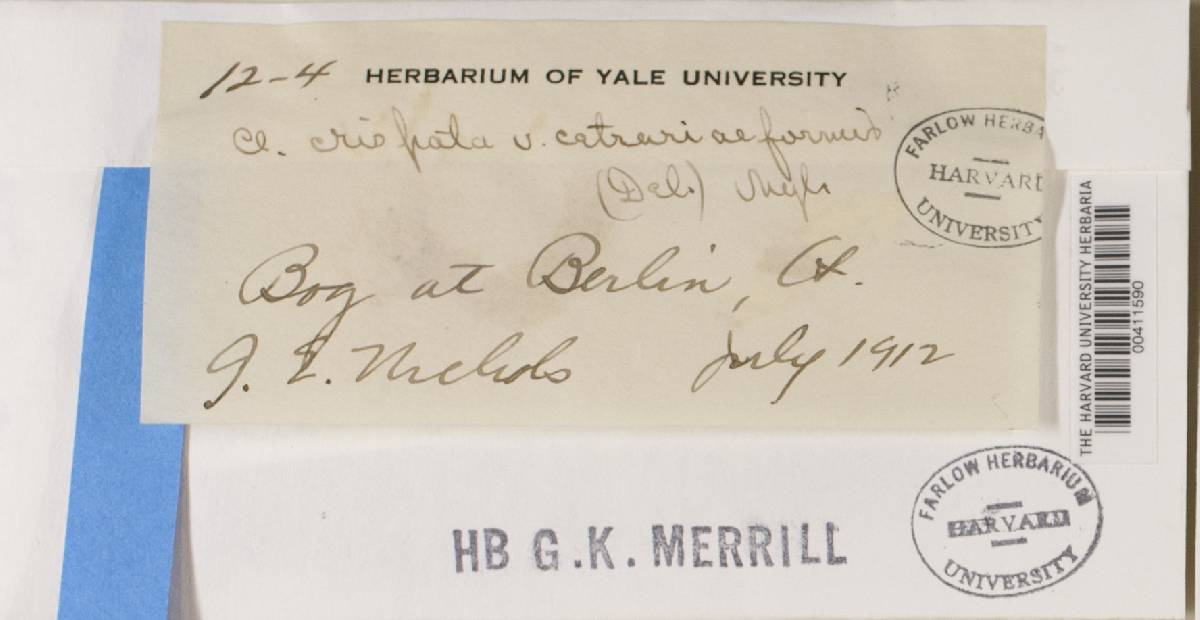 12-4 HERBARIUM OF YALE UNIVERSITY
Cl. crispata v. cetrariaeformis
(Del.)
Bog at Berlin, Ct.
G. E. Nichols July 1912
FARLOW HERBA
HARVARD
UNIVERSITY
THE HARVARD UNIVERSITY HERBARIA
00411590
HB G.K. MERRILL
FARLOW HERBARIUM
HARVARD
UNIVERSITY